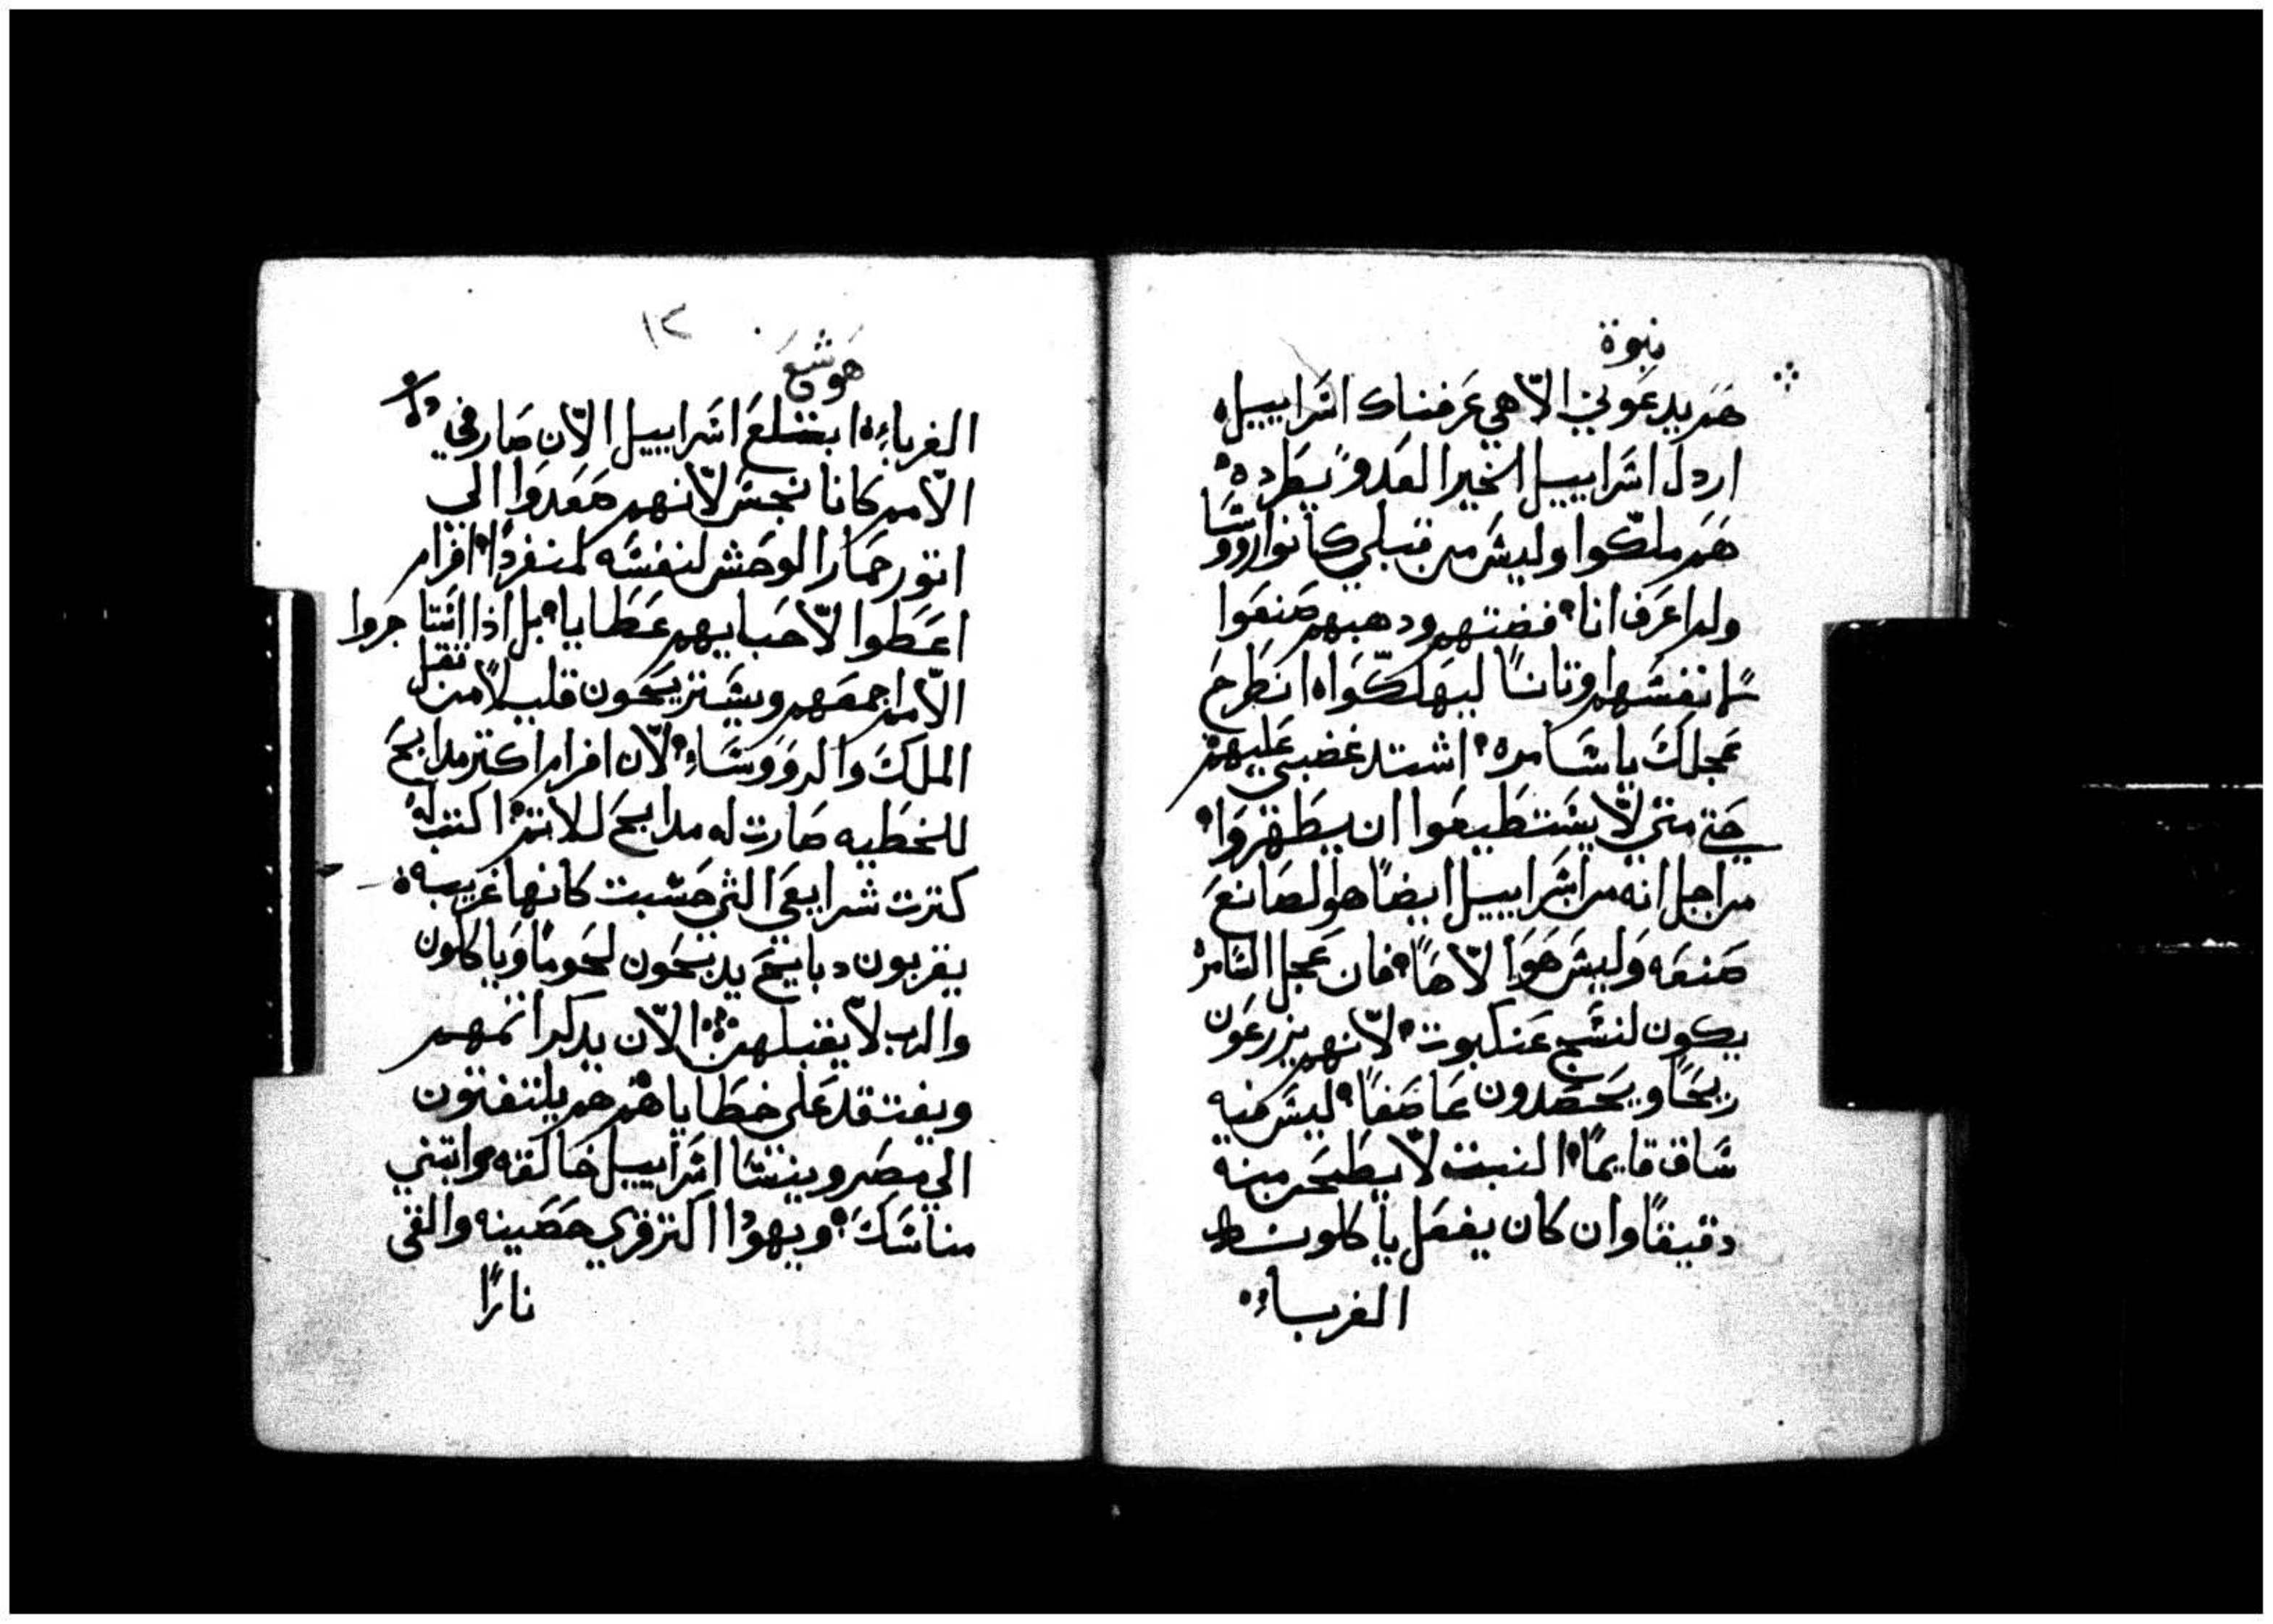 نبوة
هم يدعوني الاهي عرفناك اسراييل
اردل اسراييل الخير العدو يطرده
هم ملكوا وليس من قبلي كانوا رووسا
ولم اعرف انا فضتهم ودهبهم صنعوا
لانفسهم اوتانا ليهلكوا انطرح
عجلك يا سامره اشتد غضبي عليهم
حتي متي لا يستطيعوا ان يطهروا
من اجل انه من اسراييل ايضا هو الصانع
صنعه وليس هو الاها فان عجل السامره
يكون لنسج عنكبوت لانهم يزرعون
ريحا ويحصدون عاصفا ليس فيه
ساق قايما النبت لا يطحن منه
دقيقا وان كان يفعل ياكلونه
الغرباء
١٢
هوشع
الغرباء ابتلع اسراييل الان صار في
الامم كانا نجس لانهم صعدوا الي
اتور حمار الوحش لنفسه منفردا افرام
اعطوا لاحبايهم عطايا بل اذا استاجروا
الامم اجمعهم ويستريحون قليلا من تقل
الملك والرووساء لان افرام اكتر مدابح
للخطيه صارت له مدابح للاتم اكتب له
كترت شرايعي التي حسبت كانها غريبه
يقربون دبايح يدبحون لحوما وياكلون
والرب لا يقبلهم الان يدكر اتمهم
ويفتقد علي خطاياهم هم يلتفتون
الي مصر وينسا اسراييل خالقه وابتني
مناسك ويهودا اكتر قري حصينه والقي
نارا